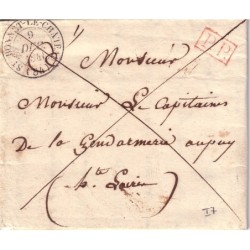 ST BONNET-LE-CHATEAU
9
DEC
(84)
P.P.
Monsieur
Monsieur Le Capitaine
De la Gendarmerie au puy
hte Loire